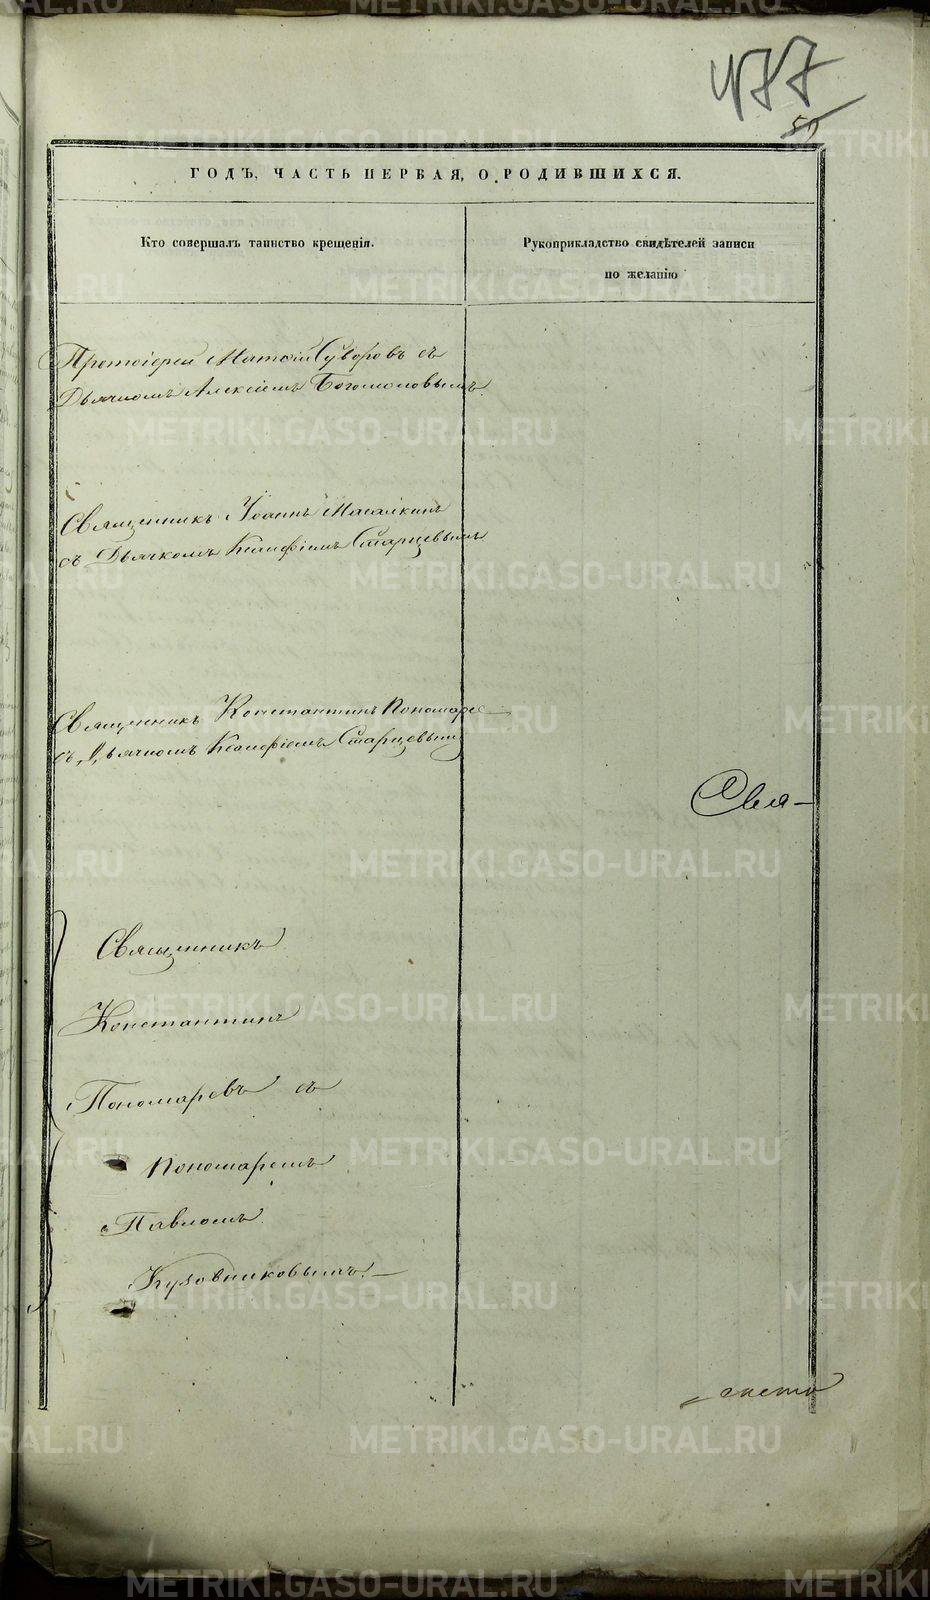 477
ГОДЪ, ЧАСТЬ ПЕРВАЯ, О РОДИВШИХСЯ.
Кто совершалъ таинство крещенія.
Рукоприкладство свидѣтелей записи
по желанію
Протоіерей Матвій Суворовъ съ
Дьячкомъ Алексіемъ Богомоловымъ.
Священникъ Іоаннъ
съ Дьячкомъ Старцевымъ
Священникъ Константинъ Пономаре
съ Дьячкомъ Старцевымъ
Свя-
Священникъ
Константинъ
Пономаревъ съ
Пономаремъ
Павломъ
Кузовниковымъ.
METRIKI.GASO-URAL.RU